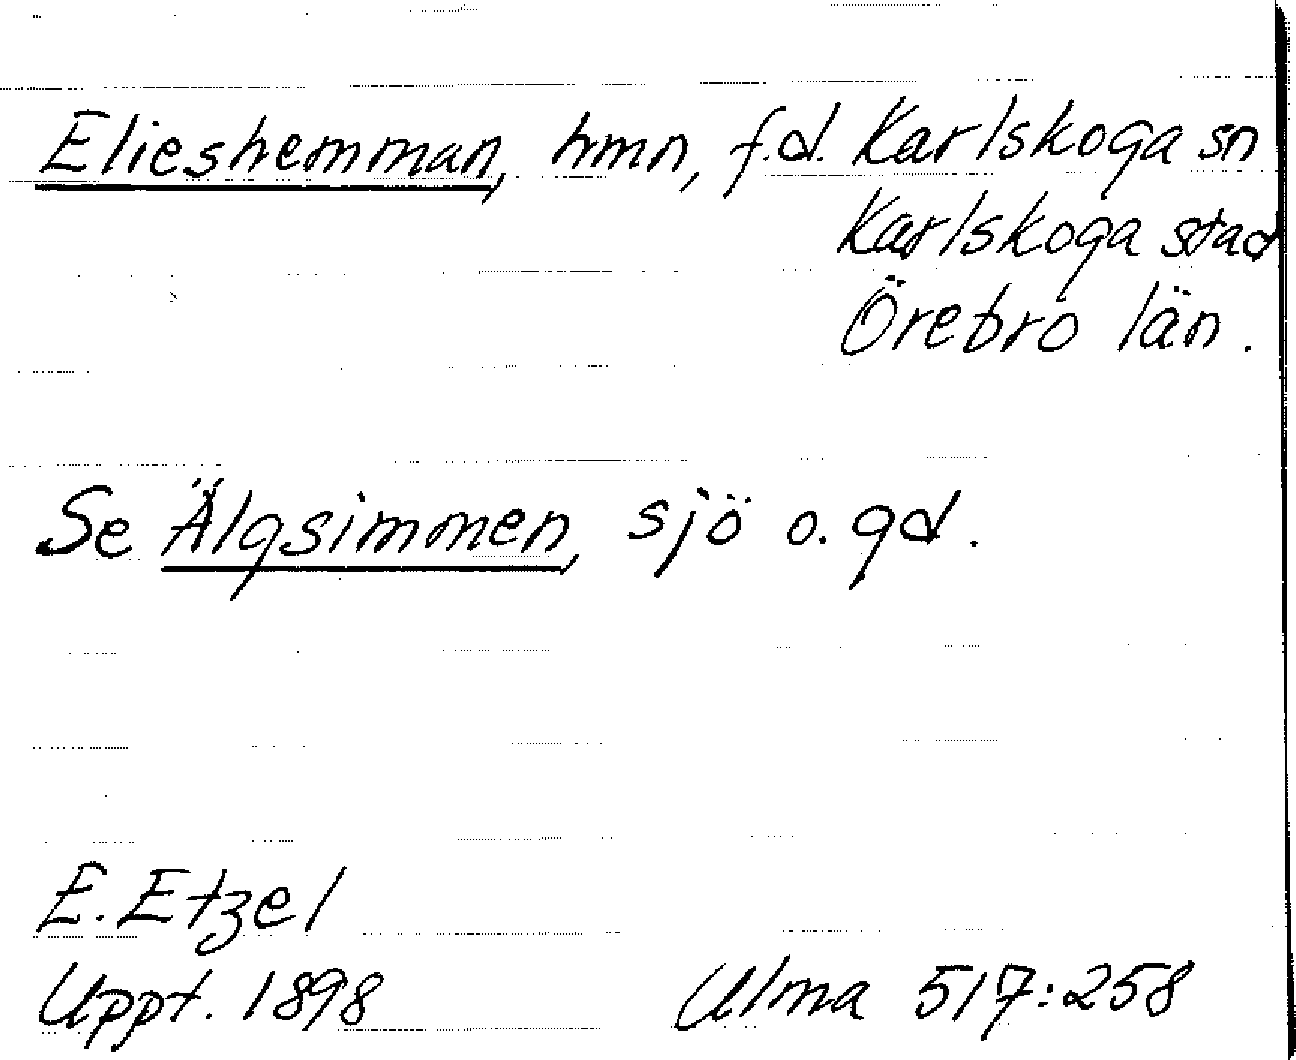 Elieshemman, hmn, f.d. Karlskoga sn
Karlskoga stad
Örebro län.
Se Älgsimmen, sjö o. gd.
E. Etzel
Uppt. 1898 Ulma 517:258